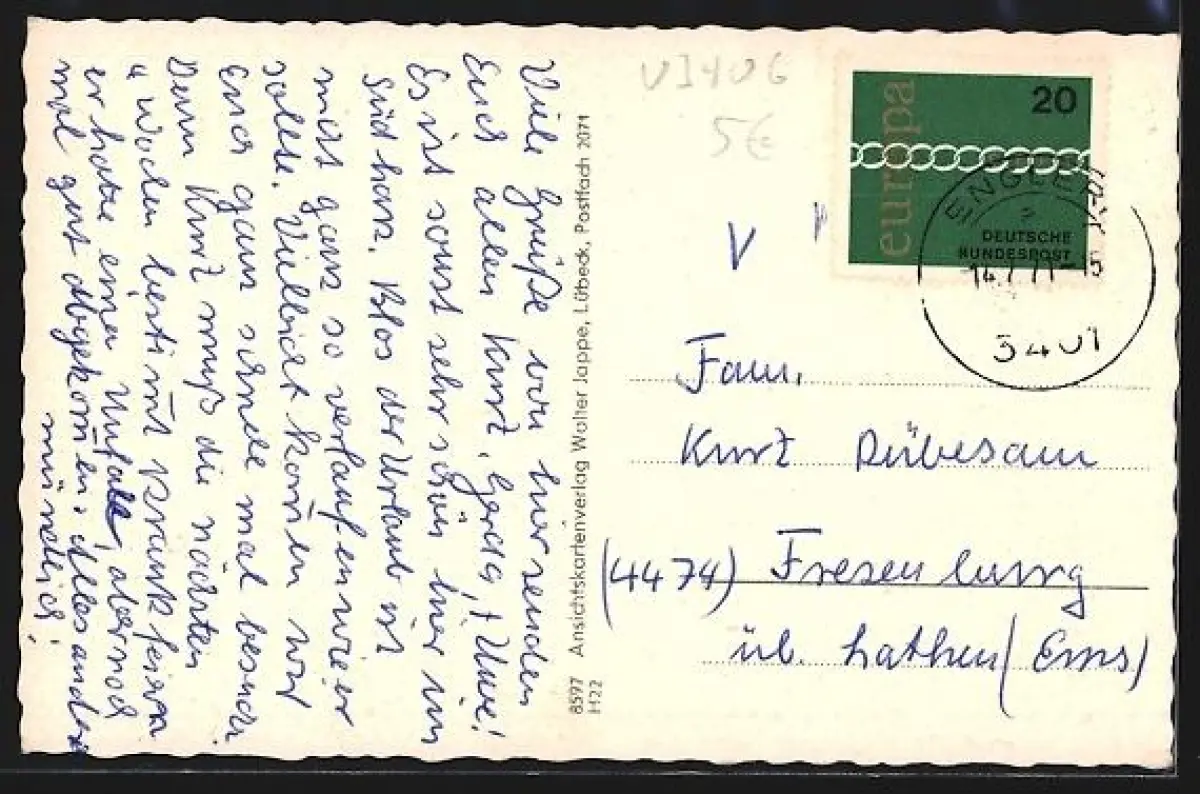 Viele Grüße von hier senden
Euch allen Kurt, Gerda, + Uwe!
Es ist sonst sehr schön hier im
Südharz. Blos der Urlaub ist
nicht ganz so verlaufen wie er
sollte. Vielleicht komen wir
Euch ganz schnell mal besuch.
Denn Kurt muß die nächsten
4 Wochen bestimt krank feiern
er hatte einen Unfall, aber noch
mal gut abgekomen. Alles andere
mündlich!
8597 Ansichtskartenverlag Wolter Jappe, Lübeck, Postfach 2071
H22
VI406
5€
europa
20
DEUTSCHE
BUNDESPOST
14.7.71-
3401
V
Fam.
Kurt Dübesam
(4474) Fresenburg
üb. Lathen (Ems)